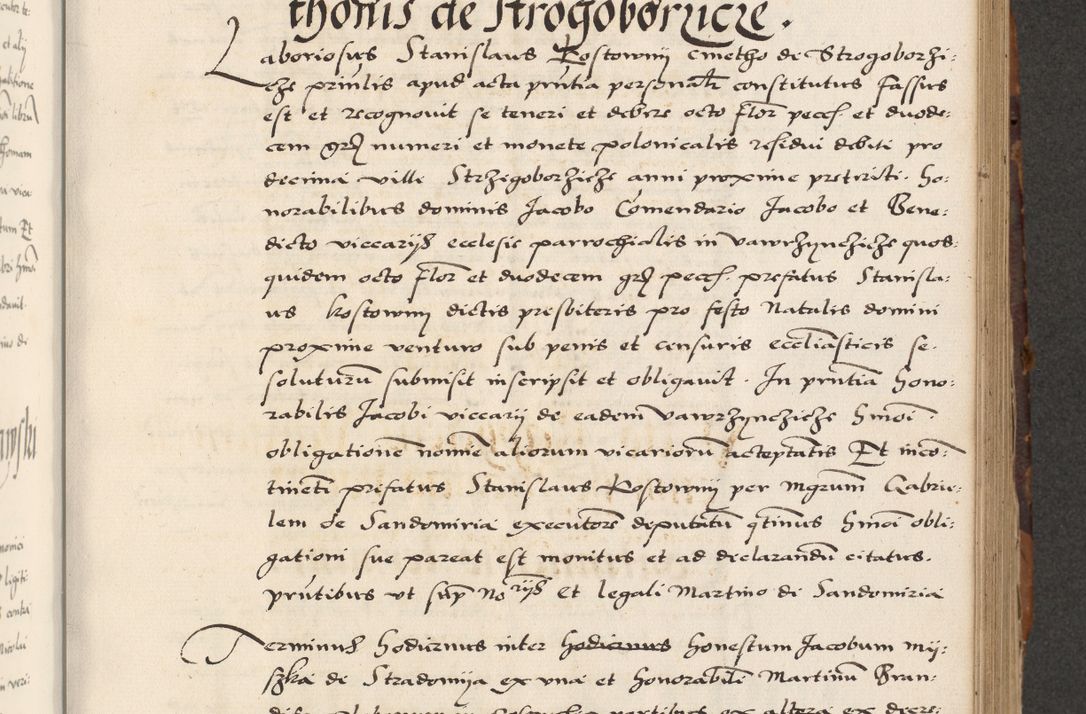 thonis de Strogoborzicze.
Laboriosus Stanislaus Kostowny cmetho de Strogoborzi:
cze prinlis apud acta prntia personalr constitutus fassus
est et recognovit se teneri et debere octo flor pecc. et duode:
cem gros numeri et monete polonicalis residui debite pro
decima ville Strzegoborziche anni proxime preteriti. ho:
norabilibus dominis Jacobo Comendario Jacobo et Bene:
dicto viccarys ecclesie parrochialis in vawrzynczicze quos:
quidem octo flor et duodecem gros pecc. prefatus Stanisla:
us Kostowny dictis presbiteris pro festo Natalis domini
proxime venturo sub penis et censuris eccliasticis se.
soluturum submisit inscripsit et obligavit. In prntia hono:
rabilis Jacobi viccary de eadem vawrzynczicze hmoi
obligatione nomie aliorum vicariorum acceptantis Et inco:
tinenti prefatus Stanislaus Kostowny per mgrum Gabrie:
lem de Sandomiria executore deputatu qtinus hmoi obli:
gationi sue pareat est monitus et ad declarandu citatus.
prntibus ut sup Norys et legali Martino de Sandomiria
Terminus hodiernus inter hodiernus honestum Jacobum my:
szka de Stradomya ex una et honorabile Martinu Gran:
ex altera ex decre: